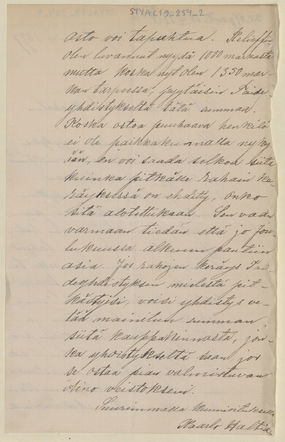 asto voi tapahtua.
olen luvannut nyt jä 1000 markasta
mutta koska nyt olen 1,350 mar-
kan tarpeessa, pyytäisin Taide-
yhdistykseltä tätä summaa.
Koska ostoa puuhaava henkilö
ei ole paikkakunnalla nyky-
ään, en voi saada selkoa siitä
kuinka pitkälle rahain ke-
räyksessä on ehditty, onko
sitä aloitettukaan. Sen vaan
varmaan tiedän että jo jou-
lukuussa alkuun pantiin
asia. Jos rahojen keräys Tai-
deyhdistyksen mielestä pit-
kästyisi, voisi yhdistys ve-
tää mainitun summan
siitä kauppahinnasta, jon-
ka yhdistykseltä saan jos
se ostaa pian valmistuvan
Aino veistoksen.
Suurimmalla kunnioituksella
Kaarlo